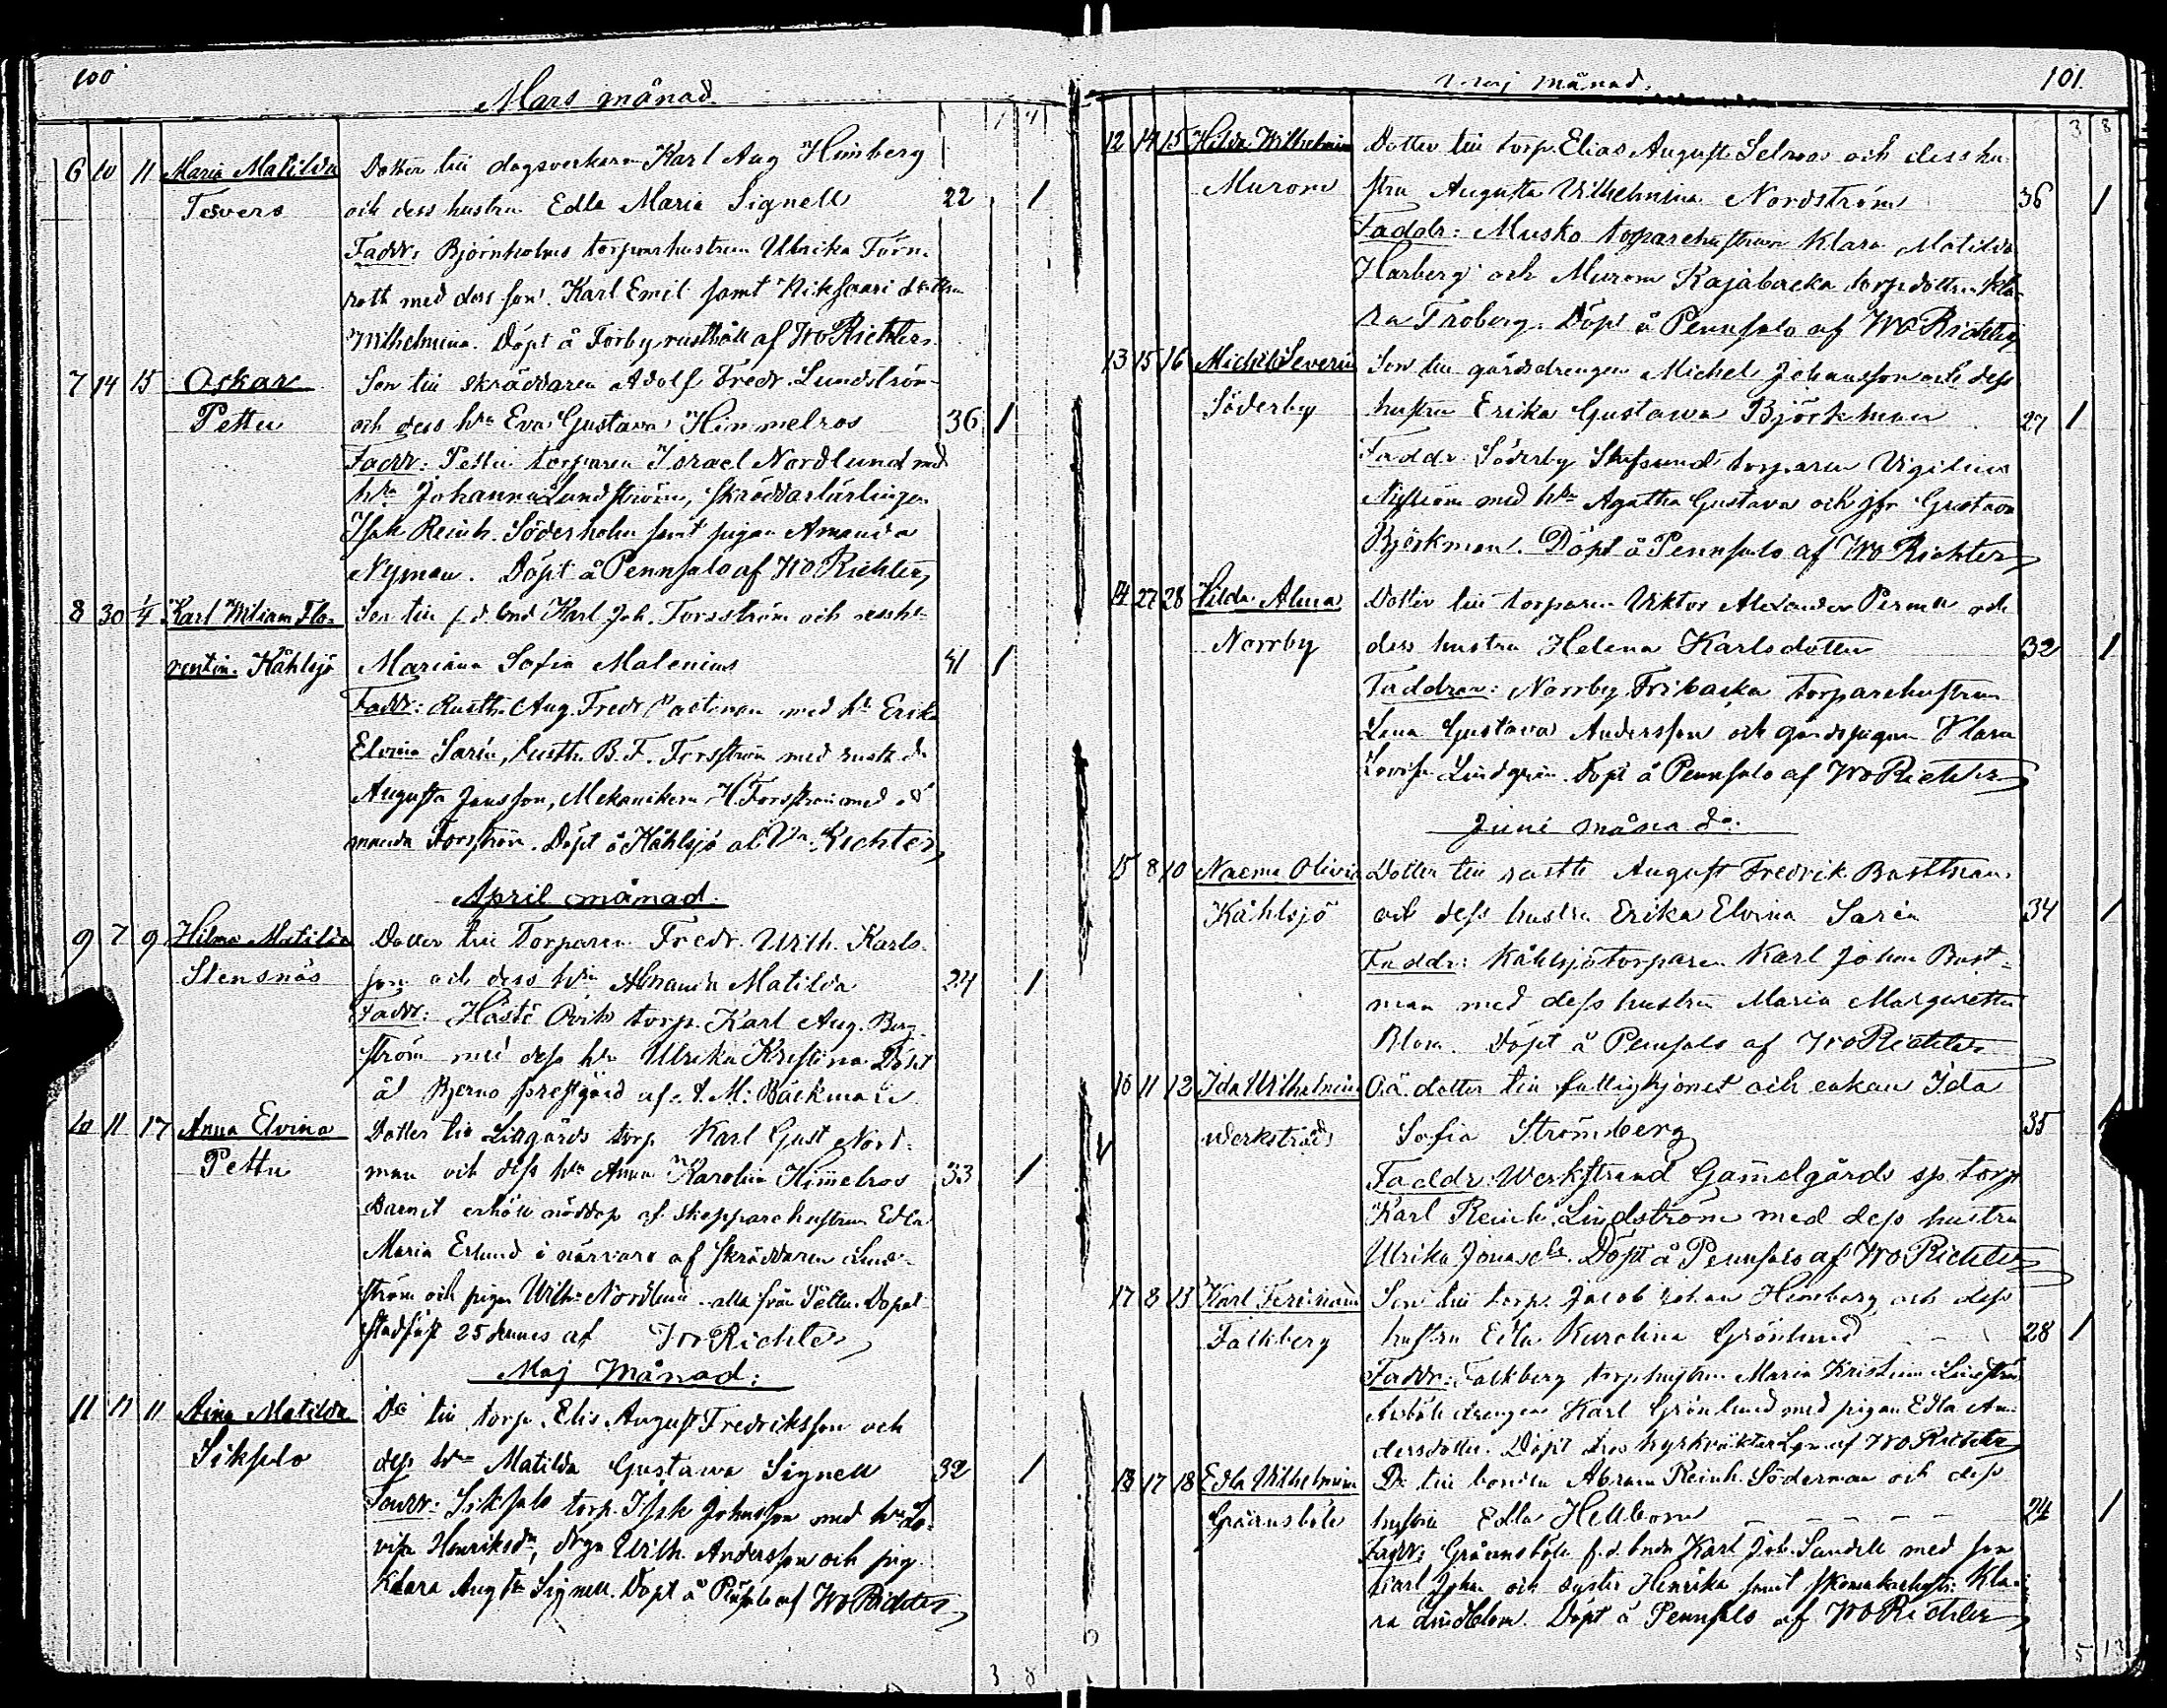 100
Mars månad.
6 10 11 Maria Matilda Dotter till dagsverkaren Karl Aug Himberg
Tesvers och dess hustru Edla Maria Signell 22 1
Faddr: Björnholms torparehustrun Ulrika Törn-
roth med dess son Karl Emil samt Niksaari dottern
Wilhelmina. Döpt å Förby rusthåll af WoRichter.
7 14 15 Oskar Son till skräddaren Adolf Fredr. Lundström
Pettu och dess hru Eva Gustava Himmelros 36 1
Faddr: Pettu torparen Israel Nordlund med
hru Johanna Lundström, skräddarlärlingen
Isak Reinh. Söderholm samt pigan Amanda
Nyman. Döpt å Pennsalo af WoRichter
8 30 1/4 Karl Wiliam Flo- Son till f.d. bnd Karl Joh. Forsström och dess h-
rentin. Kåhlsjö Mariana Sofia Malenius 41 1
Faddr: Rusth. Aug. Fredr Bastman med h. Erika
Elvina Sarin, rusth. B. F. Forsström med rusth. d.
Augusta Jansson, Mekanikern H. Forsström med
manda Forsström. Döpt å Kåhlsjö af Richter
April månad.
9 7 9 Hilma Matilda Dotter till Torparen Fredr. Wilh. Karls-
Stensnäs son och dess hru Amanda Matilda 24 1
Faddr: Hästö Övik torp. Karl Aug. Berg-
ström med dess hru Ulrika Kristina. Döpt
å Bjerno prestgård af A. M. Bäckman
10 11 17 Anna Elvina Dotter till Lillgårds torp Karl Gust Nord-
Pettu man och dess hru Anna Karolina Himelros 33 1
Barnet erhöll nöddop af skepparehustrun Edla
Maria Erlund i närvaro af skräddaren Lund-
ström och pigan Wilh. Nordlund alla från Pettu. Dopet
stadfäst 25 dennes af WoRichter
Maj Månad:
11 11 11 Aina Matilda Dr till torp. Elis August Fredriksson och
Siksalo dess hru Matilda Gustawa Signell 32 1
Faddr: Siksalo torp. Isak Johnsson med hru Lo-
visa Henriksdr, drgn Wilh. Andersson och pig.
Klara Augta Signell. Döpt å Peñsalo af WoRichter
3 8
Maj månad. 101.
3 8
12 14 15 Hilda Wilhelmina Dotter till torp. Elias August Selroos och dess hu-
Murom stru Augusta Wilhelmina Nordström 36 1
Faddr: Musko torparehustrun Klara Matilda
Harberg och Murom Kajabacka torp.dottern Kla-
ra Froberg. Döpt å Pennsalo af WoRichter
13 15 16 Michel Severin Son till gårdsdrengen Michel Johansson och dess
Söderby hustru Erika Gustawa Björkman 27 1
Faddr. Söderby torparen Vigilius
Nyström med hru Agatha Gustava och jfr Gustava
Björkman. Döpt å Pennsalo af WoRichter
14 27 28 Hilda Alma Dotter till torparen Viktor Alexander Perman och
Norrby dess hustru Helena Karlsdotter 32 1
Faddran: Norrby Fribacka torparehustrun
Lena Gustava Andersson och gårdspigan Klara
Lovisa Lindgren. Döpt å Pennsalo af WoRichter
Juni månad.
15 8 10 Naema Olivia Dotter till rusth August Fredrik Bastman
Kåhlsjö och dess hustru Erika Elvina Sarin 34 1
Faddr: Kåhlsjö torparen Karl Johan Bast-
man med dess hustru Maria Margaretta
Blom. Döpt å Pennsalo af WoRichter
16 11 12 Ida Wilhelmina O.ä. dotter till fattighjonet och enkan Ida
Werkstrand Sofia Strömberg 35
Faddr: Werkstrand Gam̃elgårds sp. torp
Karl Reinh. Lindström med dess hustru
Ulrika Jonasdr. Döpt å Pennsalo af WoRichter
17 8 13 Karl Ferdinand Son till torp. Jacob Johan Himberg och dess
Falkberg hustru Edla Karolina Grönlund 28 1
Faddr: Falkberg torp.hustrun Maria Kristina Lindström
drengen Karl Grönlund med pigan Edla An-
dersdotter. Döpt hos kyrkväktar af WoRichter
18 17 18 Edla Wilhelmina Dr till bonden Abram Reinh. Söderman och dess
Gräünsböle hustru Edla Hellbom 24 1
Faddr: Gräünsböle f.d. bnden Karl Joh. Sandell med son
Karl Johan och syster Henrika samt skomakrehustr. Kla-
ra Lindblom. Döpt å Pennsalo af WoRichter
5 13